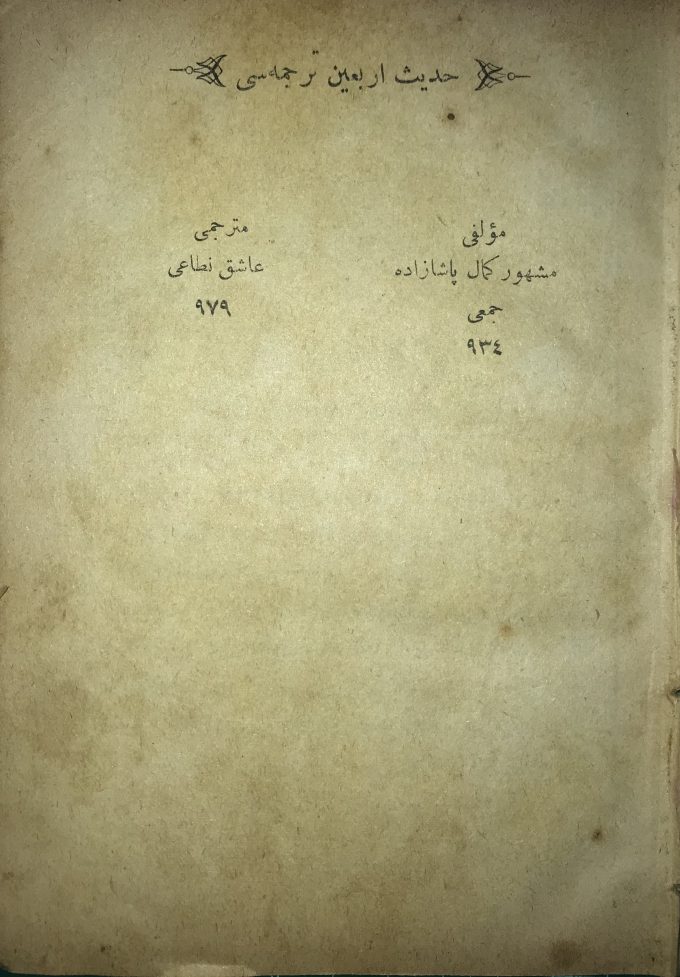 حدیث اربعین ترجمه‌سی
مؤلفی
مشهور کمال پاشازاده
جمعی
٩٣٤
مترجمی
عاشق نطاعی
٩٧٩